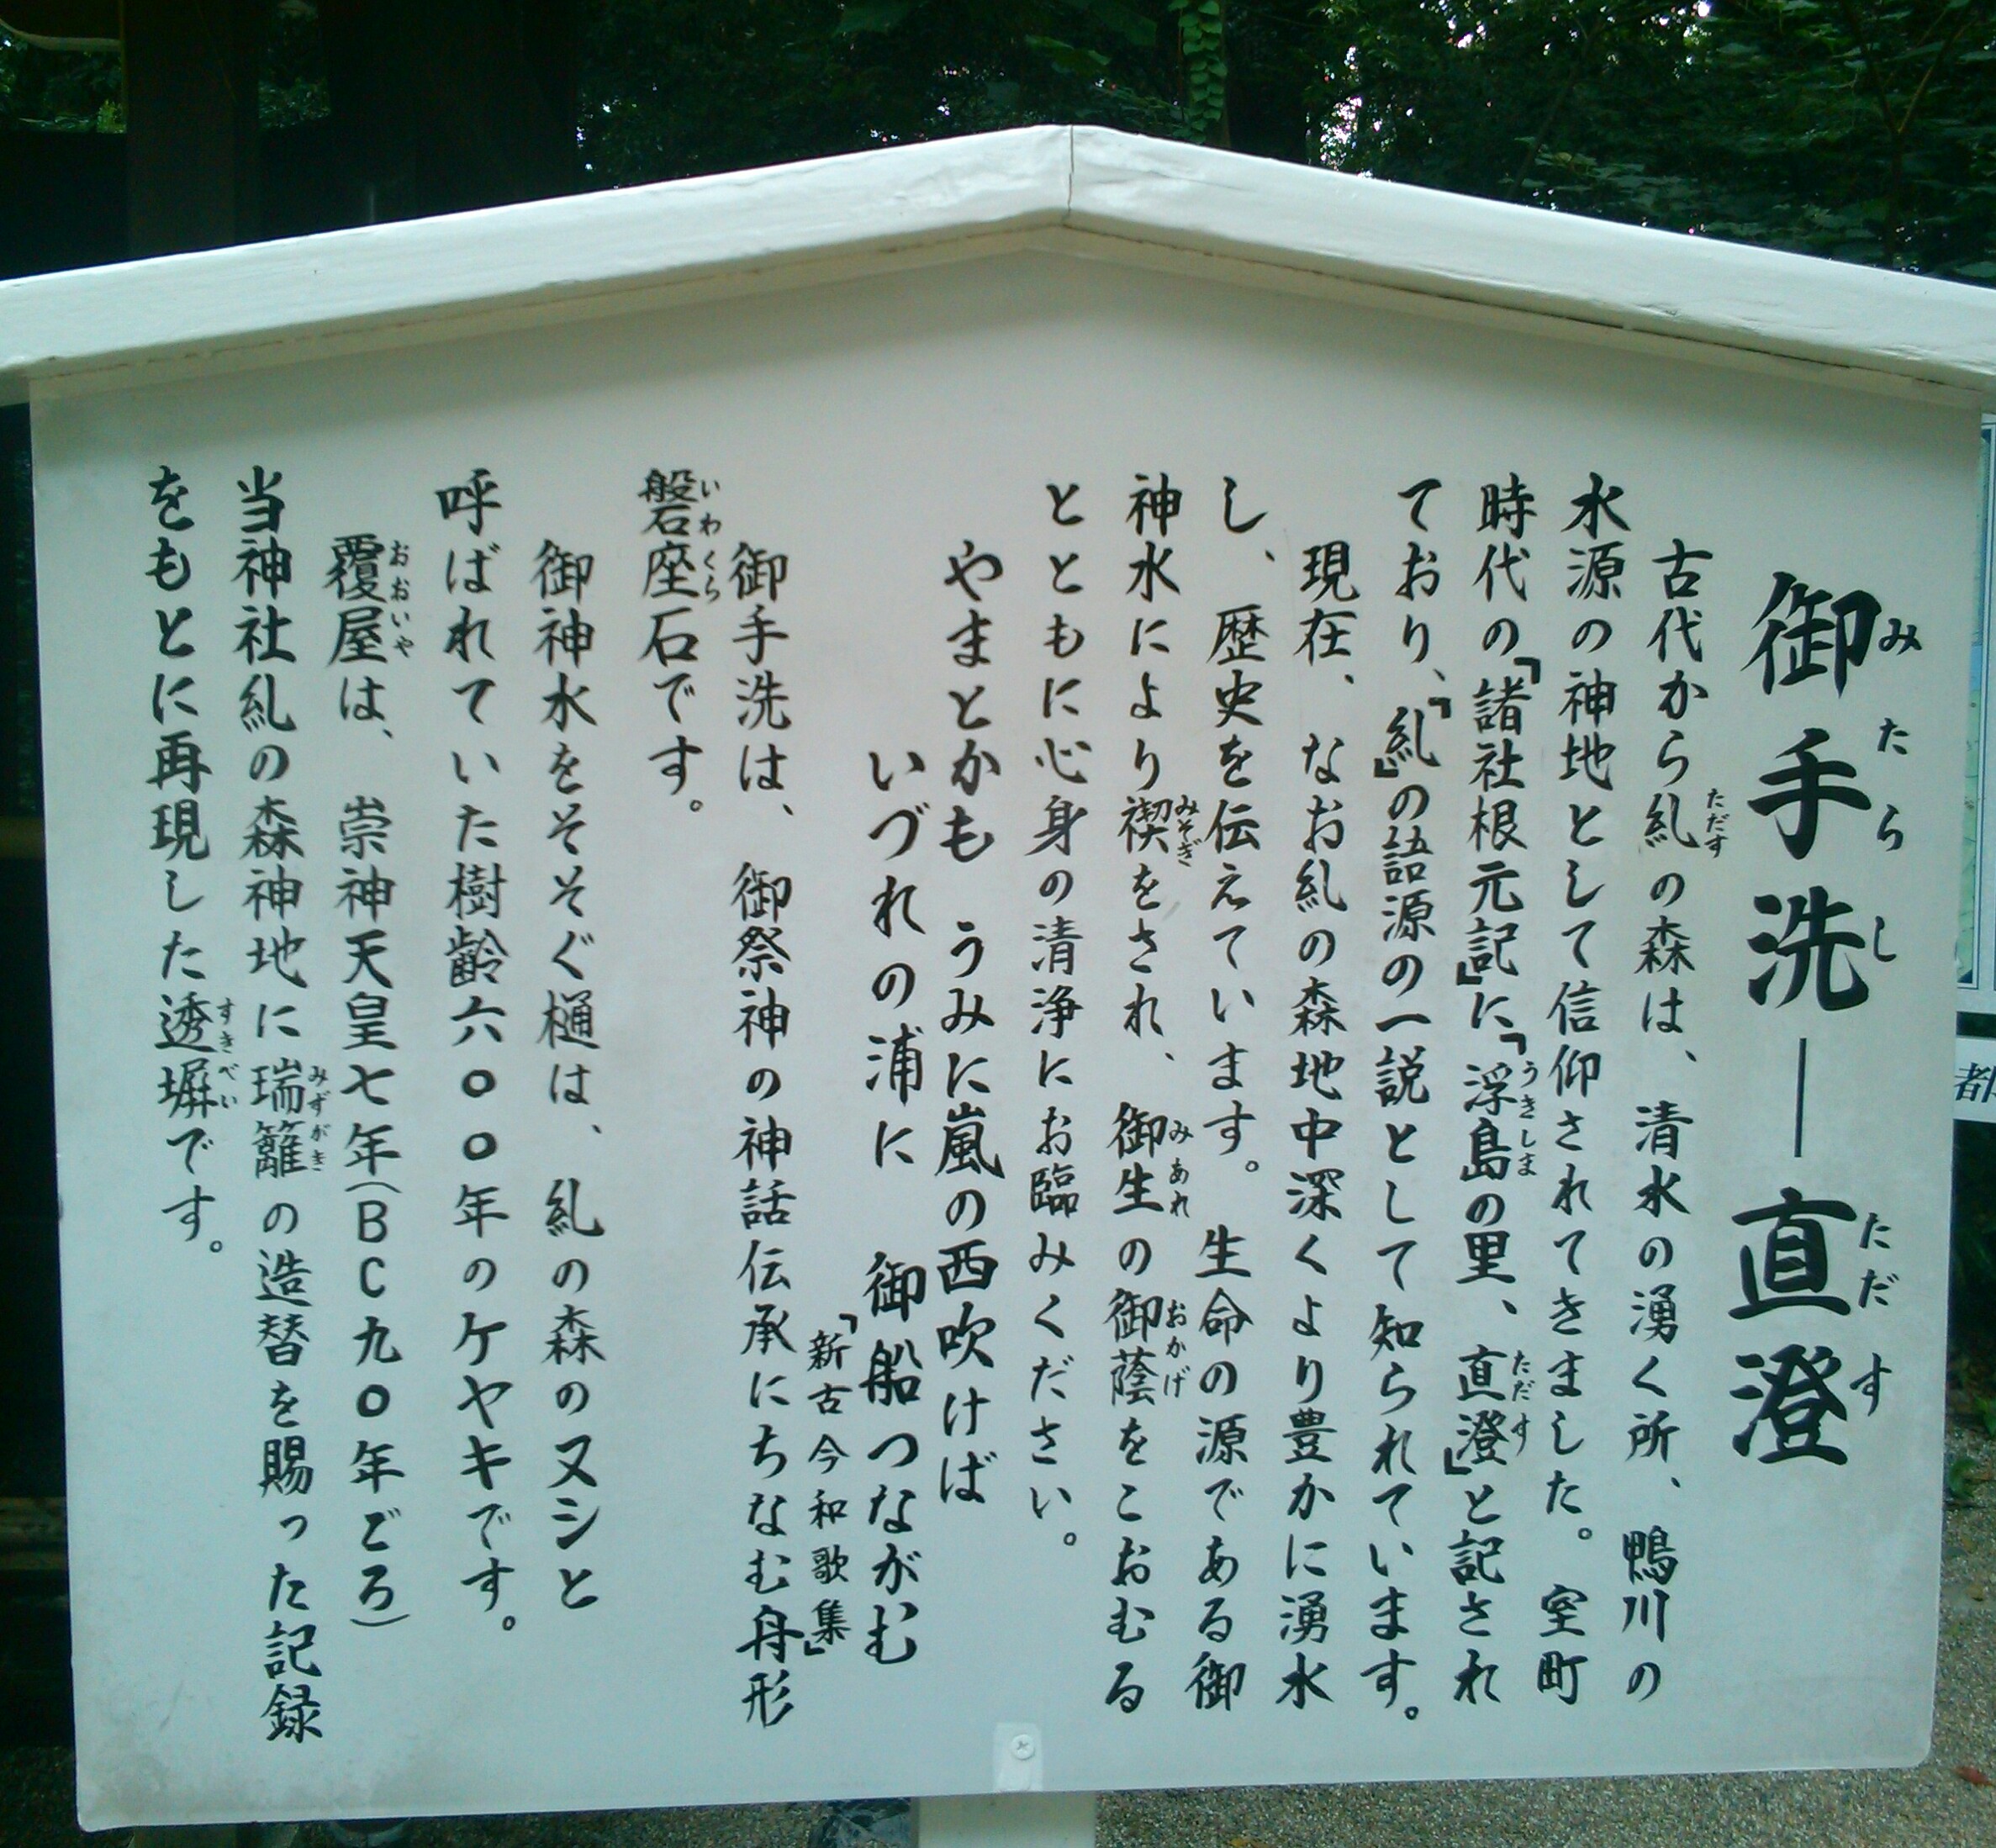 御手洗―直澄
みたらし ただす
古代から糺の森は、清水の湧く所、鴨川の
ただす
水源の神地として信仰されてきました。室町
時代の「諸社根元記」に「浮島の里、直澄」と記され
うきしま ただす
ており、「糺」の語源の一説として知られています。
現在、なお糺の森地中深くより豊かに湧水
し、歴史を伝えています。生命の源である御
神水により禊をされ、御生の御蔭をこおむる
みそぎ みあれ おかげ
とともに心身の清浄にお臨みください。
やまとかも うみに嵐の西吹けば
いづれの浦に 御船つながむ
「新古今和歌集」
御手洗は、御祭神の神話伝承にちなむ舟形
磐座石です。
いわくら
御神水をそそぐ樋は、糺の森のヌシと
呼ばれていた樹齢六〇〇年のケヤキです。
覆屋は、崇神天皇七年(BC九〇年ごろ)
おおいや
当神社糺の森神地に瑞籬の造替を賜った記録
みずがき
をもとに再現した透塀です。
すきべい
都